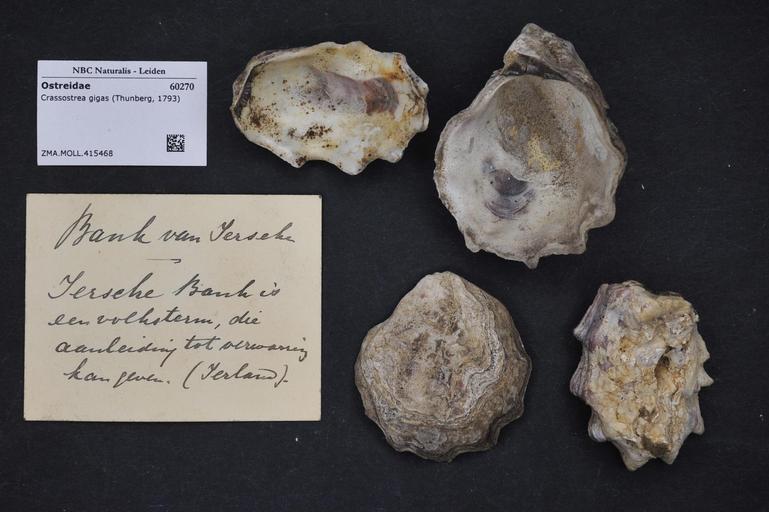 NBC Naturalis - Leiden
Ostreidae 60270
Crassostrea gigas (Thunberg, 1793)
ZMA.MOLL.415468
Bank van Ierseke
Iersche Bank is
een volksterm, die
aanleiding tot verwarring
kan geven. (Ierland).